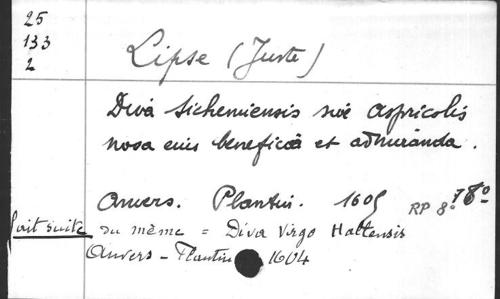 25
133
2
Lipse (Juste)
Diva Sichemiensis sive Aspricolis
nova eius beneficia et admiranda.
Anvers. Plantin. 1605 RP 8° 78°
fait suite du même = Diva Virgo Hallensis
Anvers - Plantin 1604